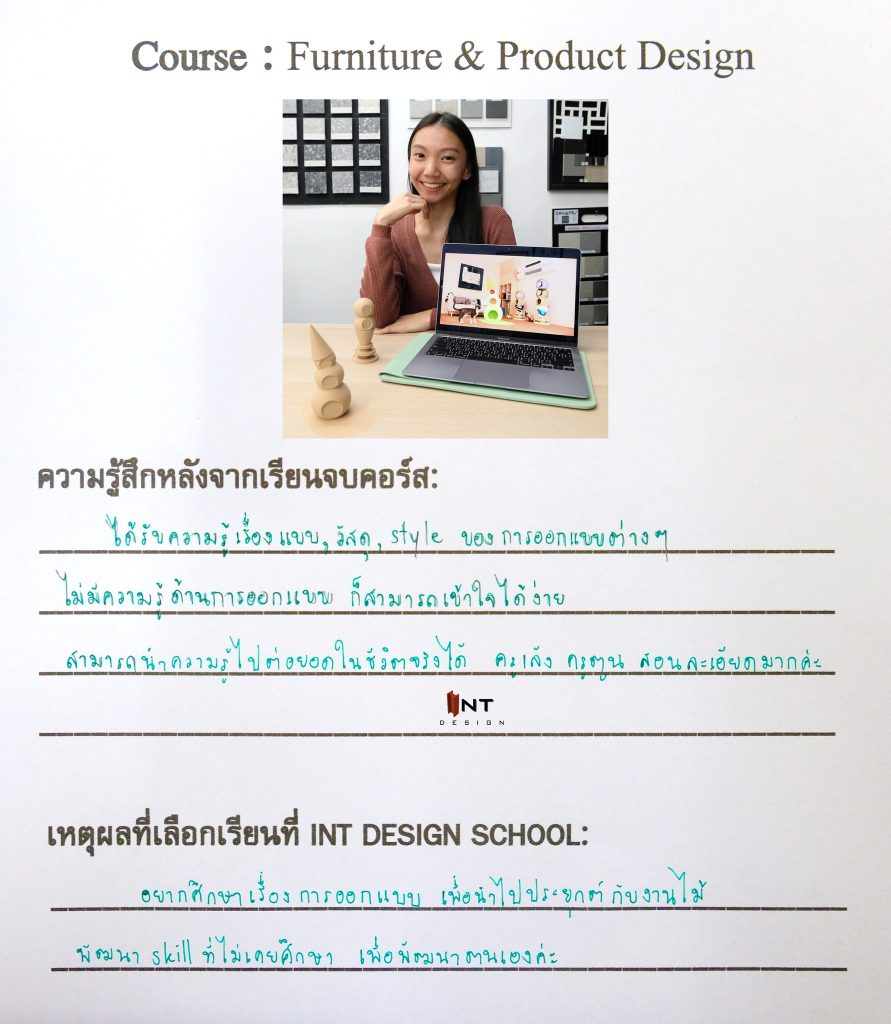 Course : Furniture & Product Design
ความรู้สึกหลังจากเรียนจบคอร์ส:
ได้รับความรู้เรื่องแบบ, วัสดุ, style ของการออกแบบต่างๆ
ไม่มีความรู้ด้านการออกแบบ ก็สามารถเข้าใจได้ง่าย
สามารถนำความรู้ไปต่อยอดในชีวิตจริงได้ ครูเล้ง ครูตูน สอนละเอียดมากค่ะ
INT
DESIGN
เหตุผลที่เลือกเรียนที่ INT DESIGN SCHOOL:
อยากศึกษาเรื่องการออกแบบ เพื่อนำไปประยุกต์กับงานไม้
พัฒนา skill ที่ไม่เคยศึกษา เพื่อพัฒนาตนเองค่ะ